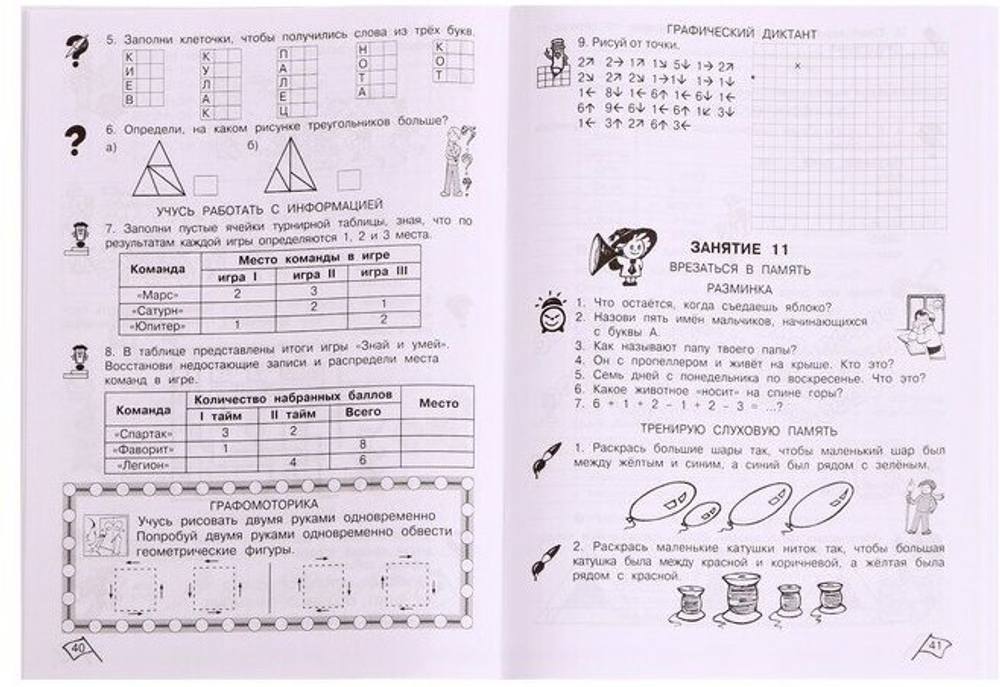 5. Заполни клеточки, чтобы получились слова из трёх букв.
К К П Н К
И У А О О
Е Л Л Т Т
В А Е А
К Ц
6. Определи, на каком рисунке треугольников больше?
а) б)
УЧУСЬ РАБОТАТЬ С ИНФОРМАЦИЕЙ
7. Заполни пустые ячейки турнирной таблицы, зная, что по
результатам каждой игры определяются 1, 2 и 3 места.
Команда Место команды в игре
игра I игра II игра III
«Марс» 2 3
«Сатурн» 2 1
«Юпитер» 1 2
8. В таблице представлены итоги игры «Знай и умей».
Восстанови недостающие записи и распредели места
команд в игре.
Команда Количество набранных баллов Место
I тайм II тайм Всего
«Спартак» 3 2
«Фаворит» 1 8
«Легион» 4 6
ГРАФОМОТОРИКА
Учусь рисовать двумя руками одновременно
Попробуй двумя руками одновременно обвести
геометрические фигуры.
40
ГРАФИЧЕСКИЙ ДИКТАНТ
9. Рисуй от точки.
2↗ 2→ 1↗ 1↘ 5↓ 1→ 2↗
2↘ 2↗ 2↘ 1→1↓ 1→ 1↓
1← 8↓ 1← 6↑ 1← 6↓ 1←
6↑ 9← 6↓ 1← 6↑ 1↙ 3↓
1← 3↑ 2↗ 6↑ 3←
ЗАНЯТИЕ 11
ВРЕЗАТЬСЯ В ПАМЯТЬ
РАЗМИНКА
1. Что остаётся, когда съедаешь яблоко?
2. Назови пять имён мальчиков, начинающихся
с буквы А.
3. Как называют папу твоего папы?
4. Он с пропеллером и живёт на крыше. Кто это?
5. Семь дней с понедельника по воскресенье. Что это?
6. Какое животное «носит» на спине горы?
7. 6 + 1 + 2 – 1 + 2 – 3 = ...?
ТРЕНИРУЮ СЛУХОВУЮ ПАМЯТЬ
1. Раскрась большие шары так, чтобы маленький шар был
между жёлтым и синим, а синий был рядом с зелёным.
2. Раскрась маленькие катушки ниток так, чтобы большая
катушка была между красной и коричневой, а жёлтая была
рядом с красной.
41